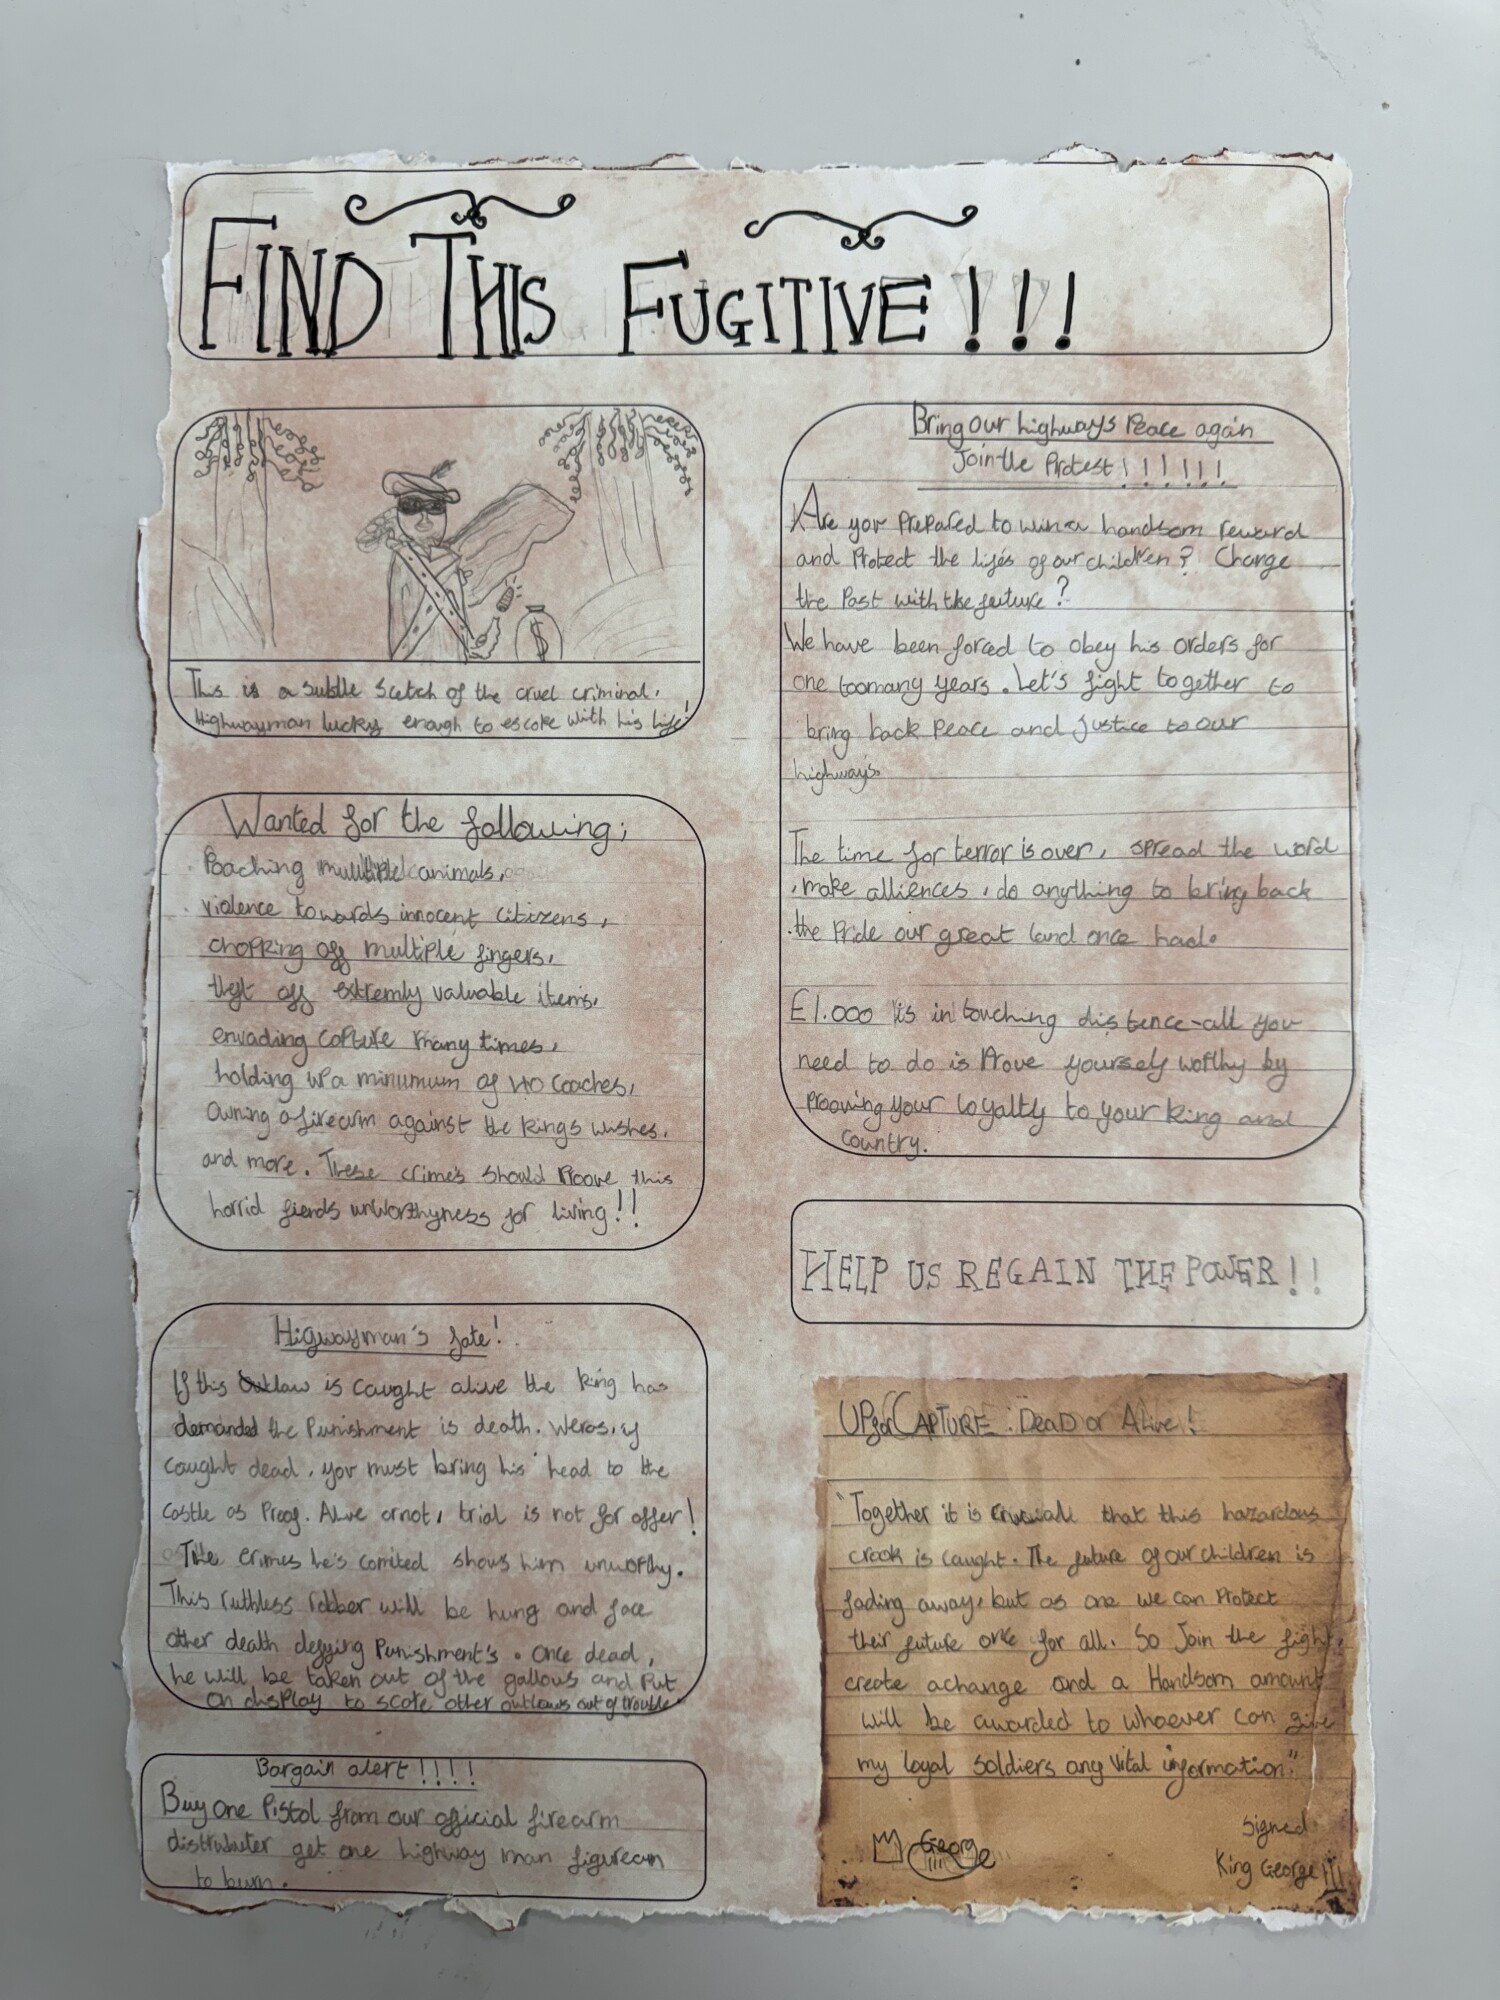 FIND THIS FUGITIVE!!!
This is a subtle scetch of the cruel criminal.
Highwayman lucky enough to escake with his life!
Wanted for the following;
Poaching multiple animals,
violence towards innocent citizens,
chopping off multiple fingers,
theft off extremly valuable items,
envading capture many times,
holding up a minumum of 40 coaches,
owning a firearm against the kings wishes,
and more. These crimes should Proove this
horrid fiends unworthyness for living!!
Higwayman's fate!
If this outlaw is caught alive the king has
demanded the Punishment is death. Weras, if
caught dead, you must bring his head to the
castle as Proof. Alive or not, trial is not for offer!
The crimes he's comited shows him unworthy.
This ruthless robber will be hung and face
other death defying Punishment's. Once dead,
he will be taken out of the gallows and Put
on disPlay to scare other outlaws out of trouble
Bargain alert!!!!
Buy one Pistol from our official firearm
distrubuter get one highway man figurean
to burn.
Bring our highways Peace again
Join the Protest!!!!!!
Are you PrePared to win a handsom reward
and Protect the lifes of our children? Change
the Past with the future?
We have been forced to obey his orders for
one toomany years. Let's fight together to
bring back Peace and justice to our
highways.
The time for terror is over, spread the word
, make alliences, do anything to bring back
the Pride our great land once had.
£1.000 is in touching distence-all you
need to do is Prove yourself worthy by
prooving your loyalty to your king and
country.
HELP US REGAIN THE POWER!!
UP for CAPTURE: DeaD or Alive!
"Together it is crucial that this hazardous
crook is caught. The future of our children is
fading away, but as one we can Protect
their future once for all. So Join the fight,
create a change and a Handsom amount
will be awarded to whoever can give
my loyal soldiers any vital information."
George
Signed
King George III